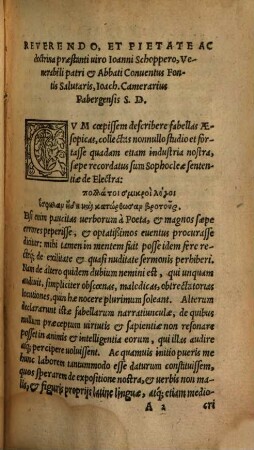 REVERENDO, ET PIETATE AC
doctrina præstanti uiro Ioanni Schoppero, Ve-
nerabili patri & Abbati Conuentus Fon-
tis Salutaris, Ioach. Camerarius
Pabergensis S. D.
CVM cœpissem describere fabellas Æ-
sopicas, collectas nonnullo studio et for-
tasse quadam etiam industria nostra,
sæpe recordatus sum Sophocleæ senten-
tiæ de Electra:
πολλά τοι σμικροὶ λόγοι
ἔσφηλαν ἤδη καὶ κατώρθωσαν βροτούς.
Etsi nim paucitas uerborum à Poeta, & magnos sæpe
errores peperisse, & optatißimos euentus procurasse
dicitur: mihi tamen in mentem fuit posse idem fere re-
ctè, de exilitate & quasi nuditate sermonis perhiberi.
Nam de altero quidem dubium nemini est, qui unquam
audiuit, simpliciter obscenas, maledicas, obtrectatorias
locutiones, quin hæ nocere plurimum soleant. Alterum
declararunt istæ fabellarum narratiunculæ, de quibus
nullum præceptum uirtutis & sapientiæ non resonare
possei in animis & intelligentia eorum, qui illas audire
atq; percipere uoluissent. Ac quamuis initio pueris me
hunc laborem tantummodo esse daturum constituissem,
quos sperarem de expositione nostra, & uerbis non ma-
lis, & figuris proprijs latinæ linguæ, atq; etiam medio-
A 2 cri